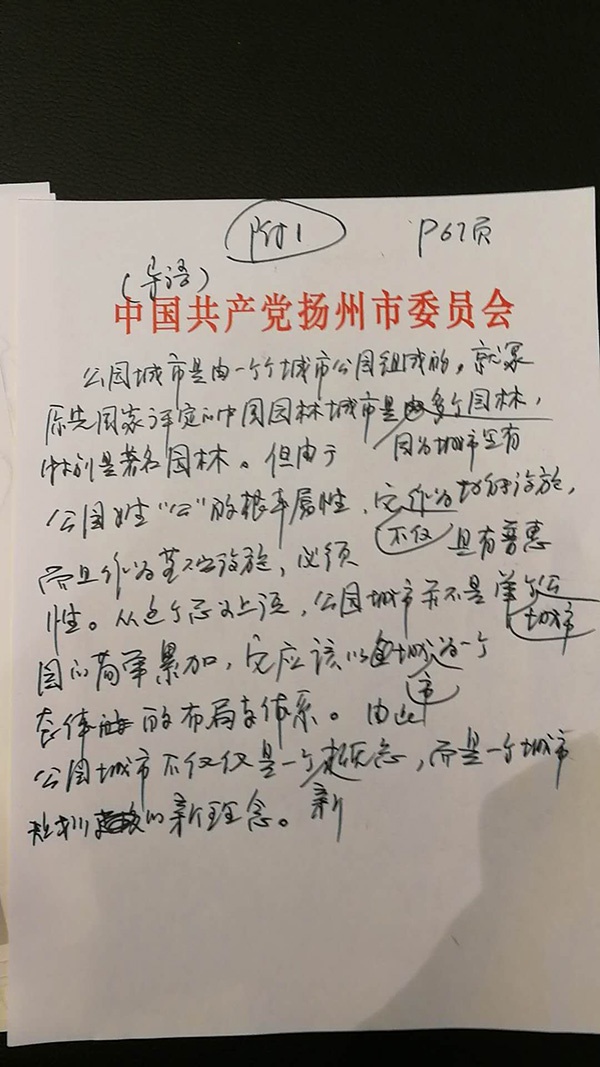 附1 P67页
(导语)
中国共产党扬州市委员会
公园城市是由一个个城市公园组成的，就象
原先国家评定的中国园林城市是由多个园林，
特别是著名园林。但由于 因为城市里有
公园姓“公”的根本属性，它作为城市设施，
而且作为基础设施，必须 不仅 具有普惠
性。从这个意义上说，公园城市并不是单个公
城市
园的简单累加，它应该以全城为一个
市
整体的布局与体系。由此
公园城市不仅仅是一个概念，而是一个城市
规划的新理念。 新